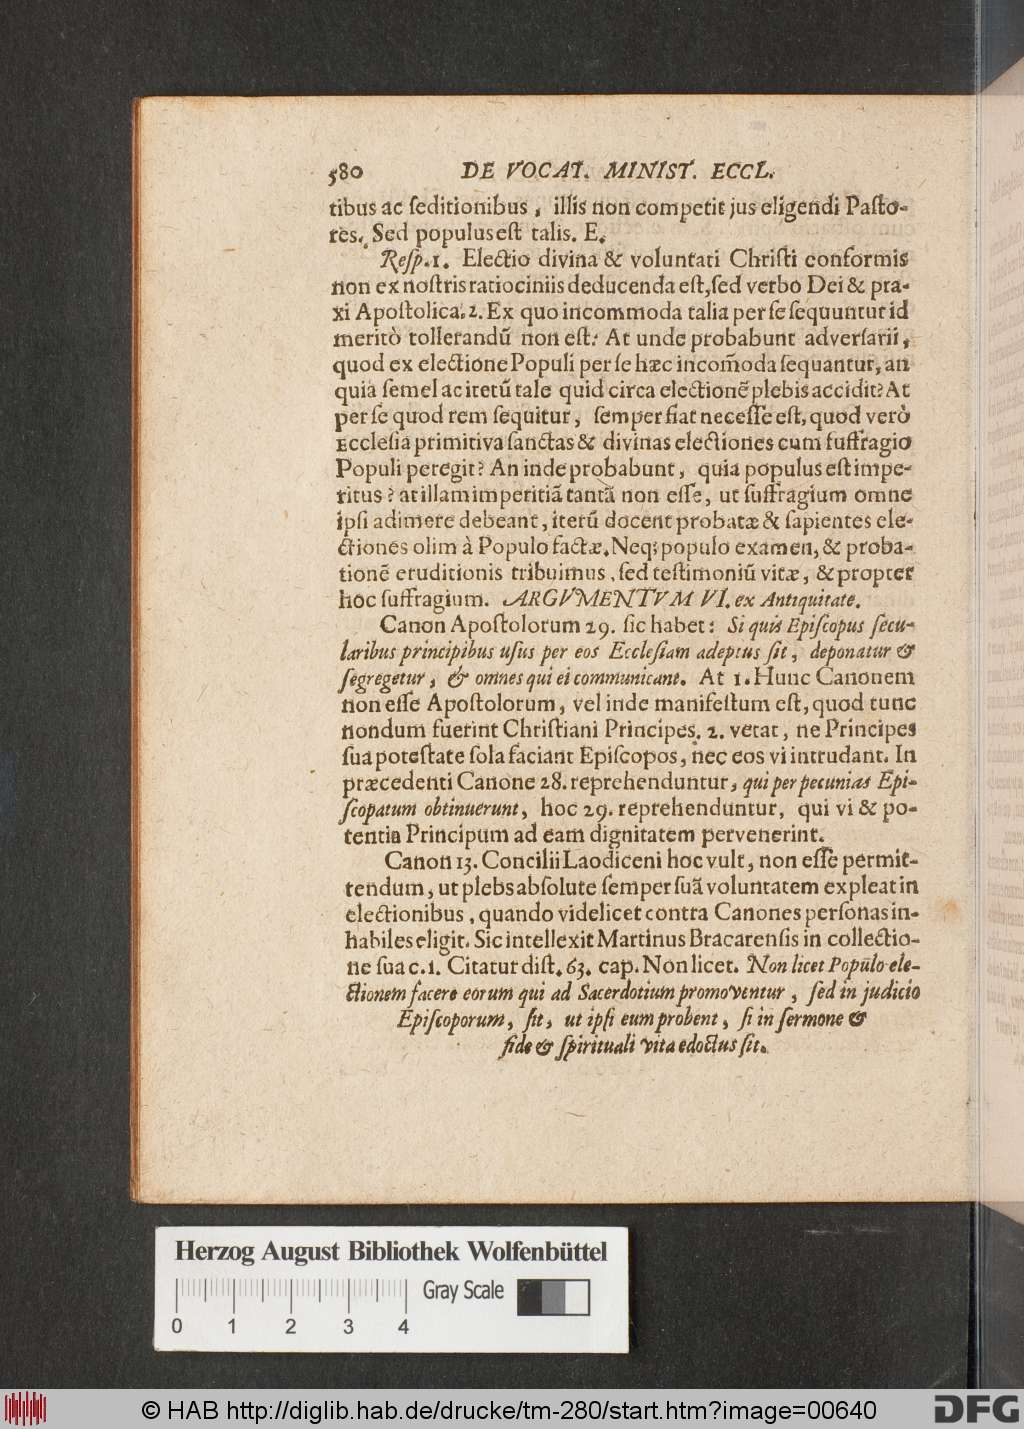 580 DE VOCAT. MINIST. ECCL.
tibus ac ſeditionibus, illis non competit jus eligendi Paſto-
res. Sed populus eſt talis. E.
Reſp. 1. Electio divina & voluntati Chriſti conformis
non ex noſtris ratiociniis deducenda eſt, ſed verbo Dei & pra-
xi Apoſtolica. 2. Ex quo incommoda talia per ſe ſequuntur id
meritò tollerandū non eſt: At unde probabunt adverſarii,
quod ex electione Populi per ſe hæc incom̃oda ſequantur, an
quia ſemel ac iterū tale quid circa electionē plebis accidit? At
per ſe quod rem ſequitur, ſemper fiat neceſſe eſt, quod verò
Eccleſia primitiva ſanctas & divinas electiones cum ſuffragio
Populi peregit? An inde probabunt, quia populus eſt impe-
ritus? at illam imperitiã tantã non eſſe, ut ſuffragium omne
ipſi adimere debeant, iterū docent probatæ & ſapientes ele-
ctiones olim à Populo factæ. Neq; populo examen, & proba-
tionē eruditionis tribuimus, ſed teſtimoniū vitæ, & propter
hoc ſuffragium. ARGVMENTVM VI. ex Antiquitate.
Canon Apoſtolorum 29. ſic habet: Si quis Epiſcopus ſecu-
laribus principibus uſus per eos Eccleſiam adeptus ſit, deponatur &
ſegregetur, & omnes qui ei communicant. At 1. Hunc Canonem
non eſſe Apoſtolorum, vel inde manifeſtum eſt, quod tunc
nondum fuerint Chriſtiani Principes. 2. vetat, ne Principes
ſua poteſtate ſola faciant Epiſcopos, nec eos vi intrudant. In
præcedenti Canone 28. reprehenduntur, qui per pecunias Epi-
ſcopatum obtinuerunt, hoc 29. reprehenduntur, qui vi & po-
tentia Principum ad eam dignitatem pervenerint.
Canon 13. Concilii Laodiceni hoc vult, non eſſe permit-
tendum, ut plebs abſolute ſemper ſuã voluntatem expleat in
electionibus, quando videlicet contra Canones perſonas in-
habiles eligit. Sic intellexit Martinus Bracarenſis in collectio-
ne ſua c. 1. Citatur diſt. 63. cap. Non licet. Non licet Populo ele-
ctionem facere eorum qui ad Sacerdotium promoventur, ſed in judicio
Epiſcoporum, ſit, ut ipſi eum probent, ſi in ſermone &
fide & ſpirituali vita edoctus ſit.
Herzog August Bibliothek Wolfenbüttel
Gray Scale
0 1 2 3 4
© HAB http://diglib.hab.de/drucke/tm-280/start.htm?image=00640
DFG